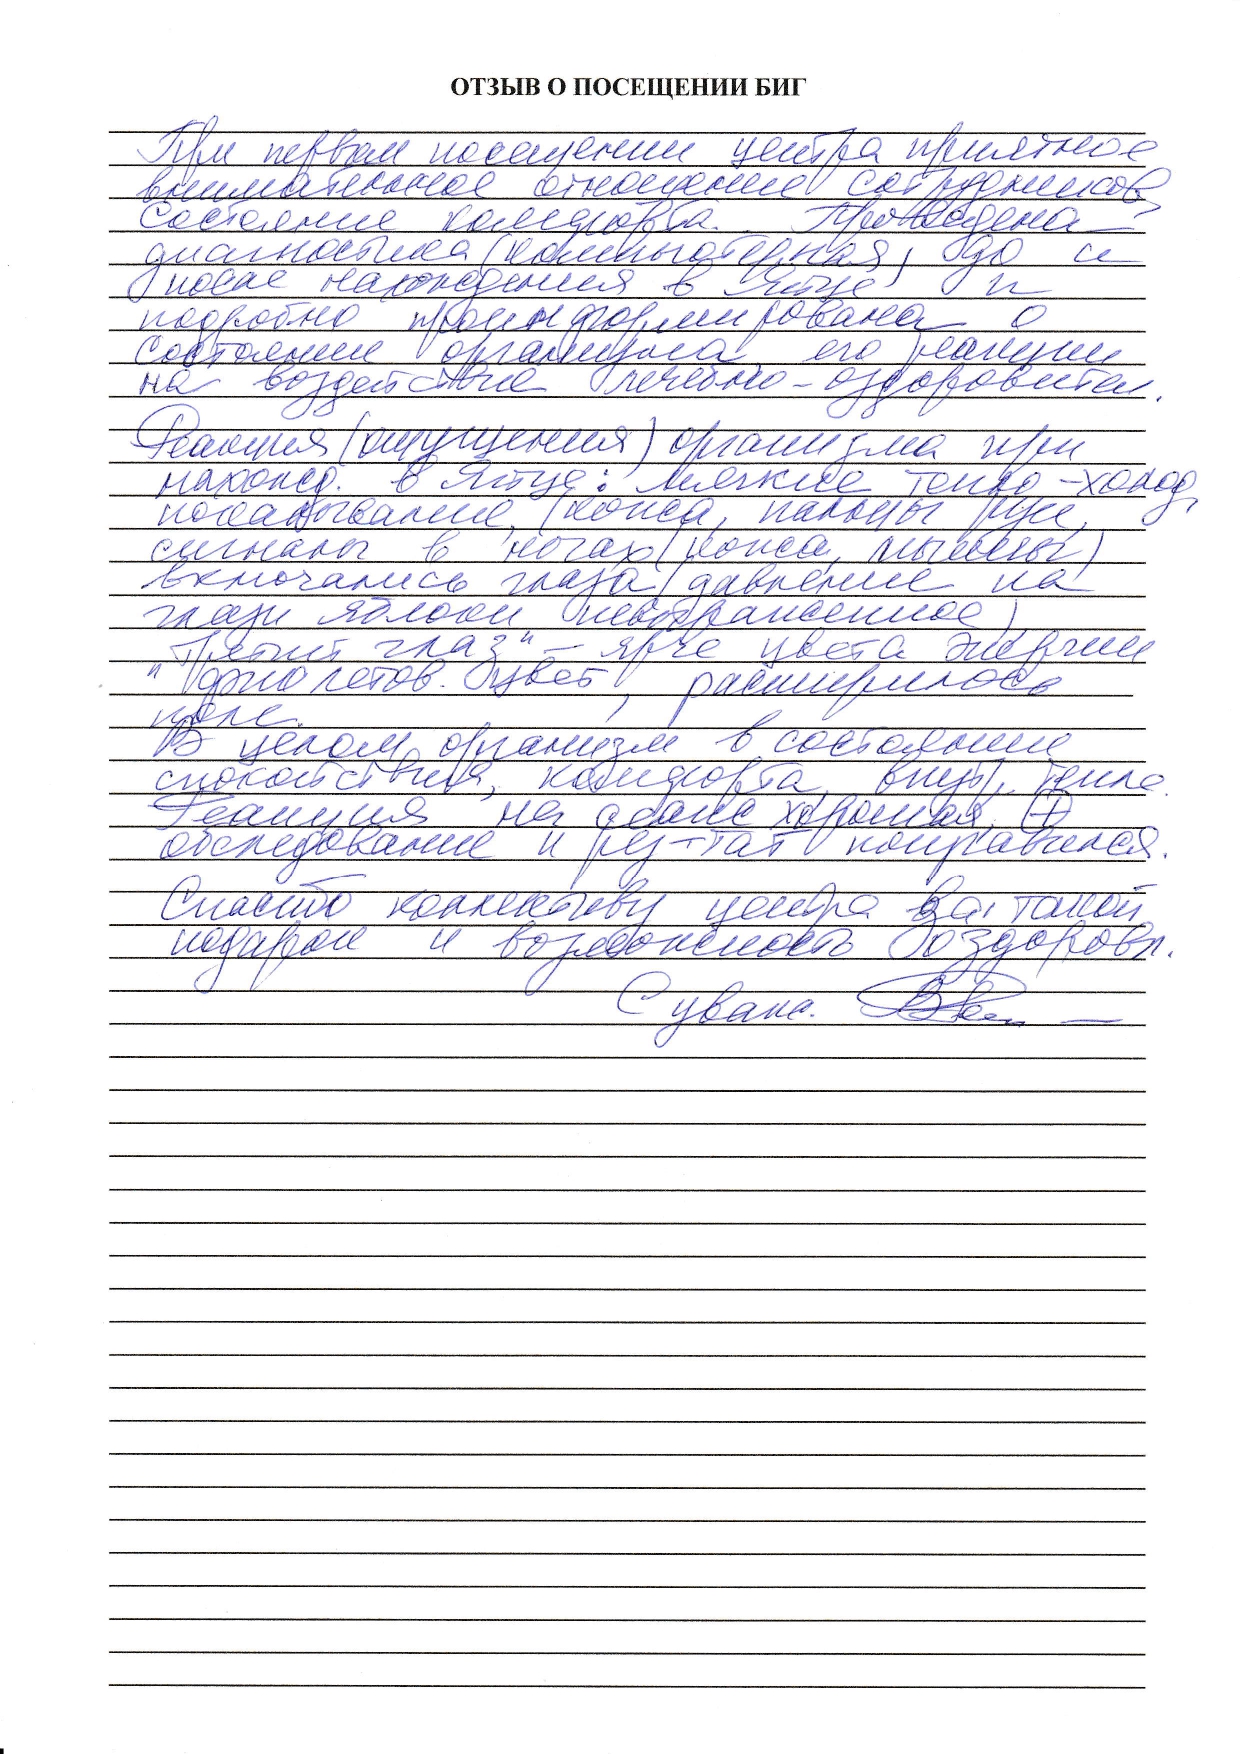 ОТЗЫВ О ПОСЕЩЕНИИ БИГ
При первом посещении центра приятное
внимательное отношение сотрудников,
состояние комфорта. Проведена
диагностика (компьютерная) до и
после нахождения в Яйце и
подробно проинформирована о
состоянии организма, его реакции
на воздействие лечебно-оздоровител.
Реакция (ощущения) организма при
нахожд. в Яйце: мягкие тепло-холод,
покалывание, (кожа, пальцы рук,
сигналы в ногах (кожа, мышцы)
включались глаза (давление на
глазн яблоки невыраженное)
"Третий глаз" – ярче цвета энергии
"фиолетов. цвет, расширилось
поле.
В целом организм в состоянии
спокойствия, комфорта, внутр. тепле.
Реакция на сеанс хорошая, +
обследование и рез-тат понравился.
Спасибо коллективу центра за такой
подарок и возможность оздоровл.